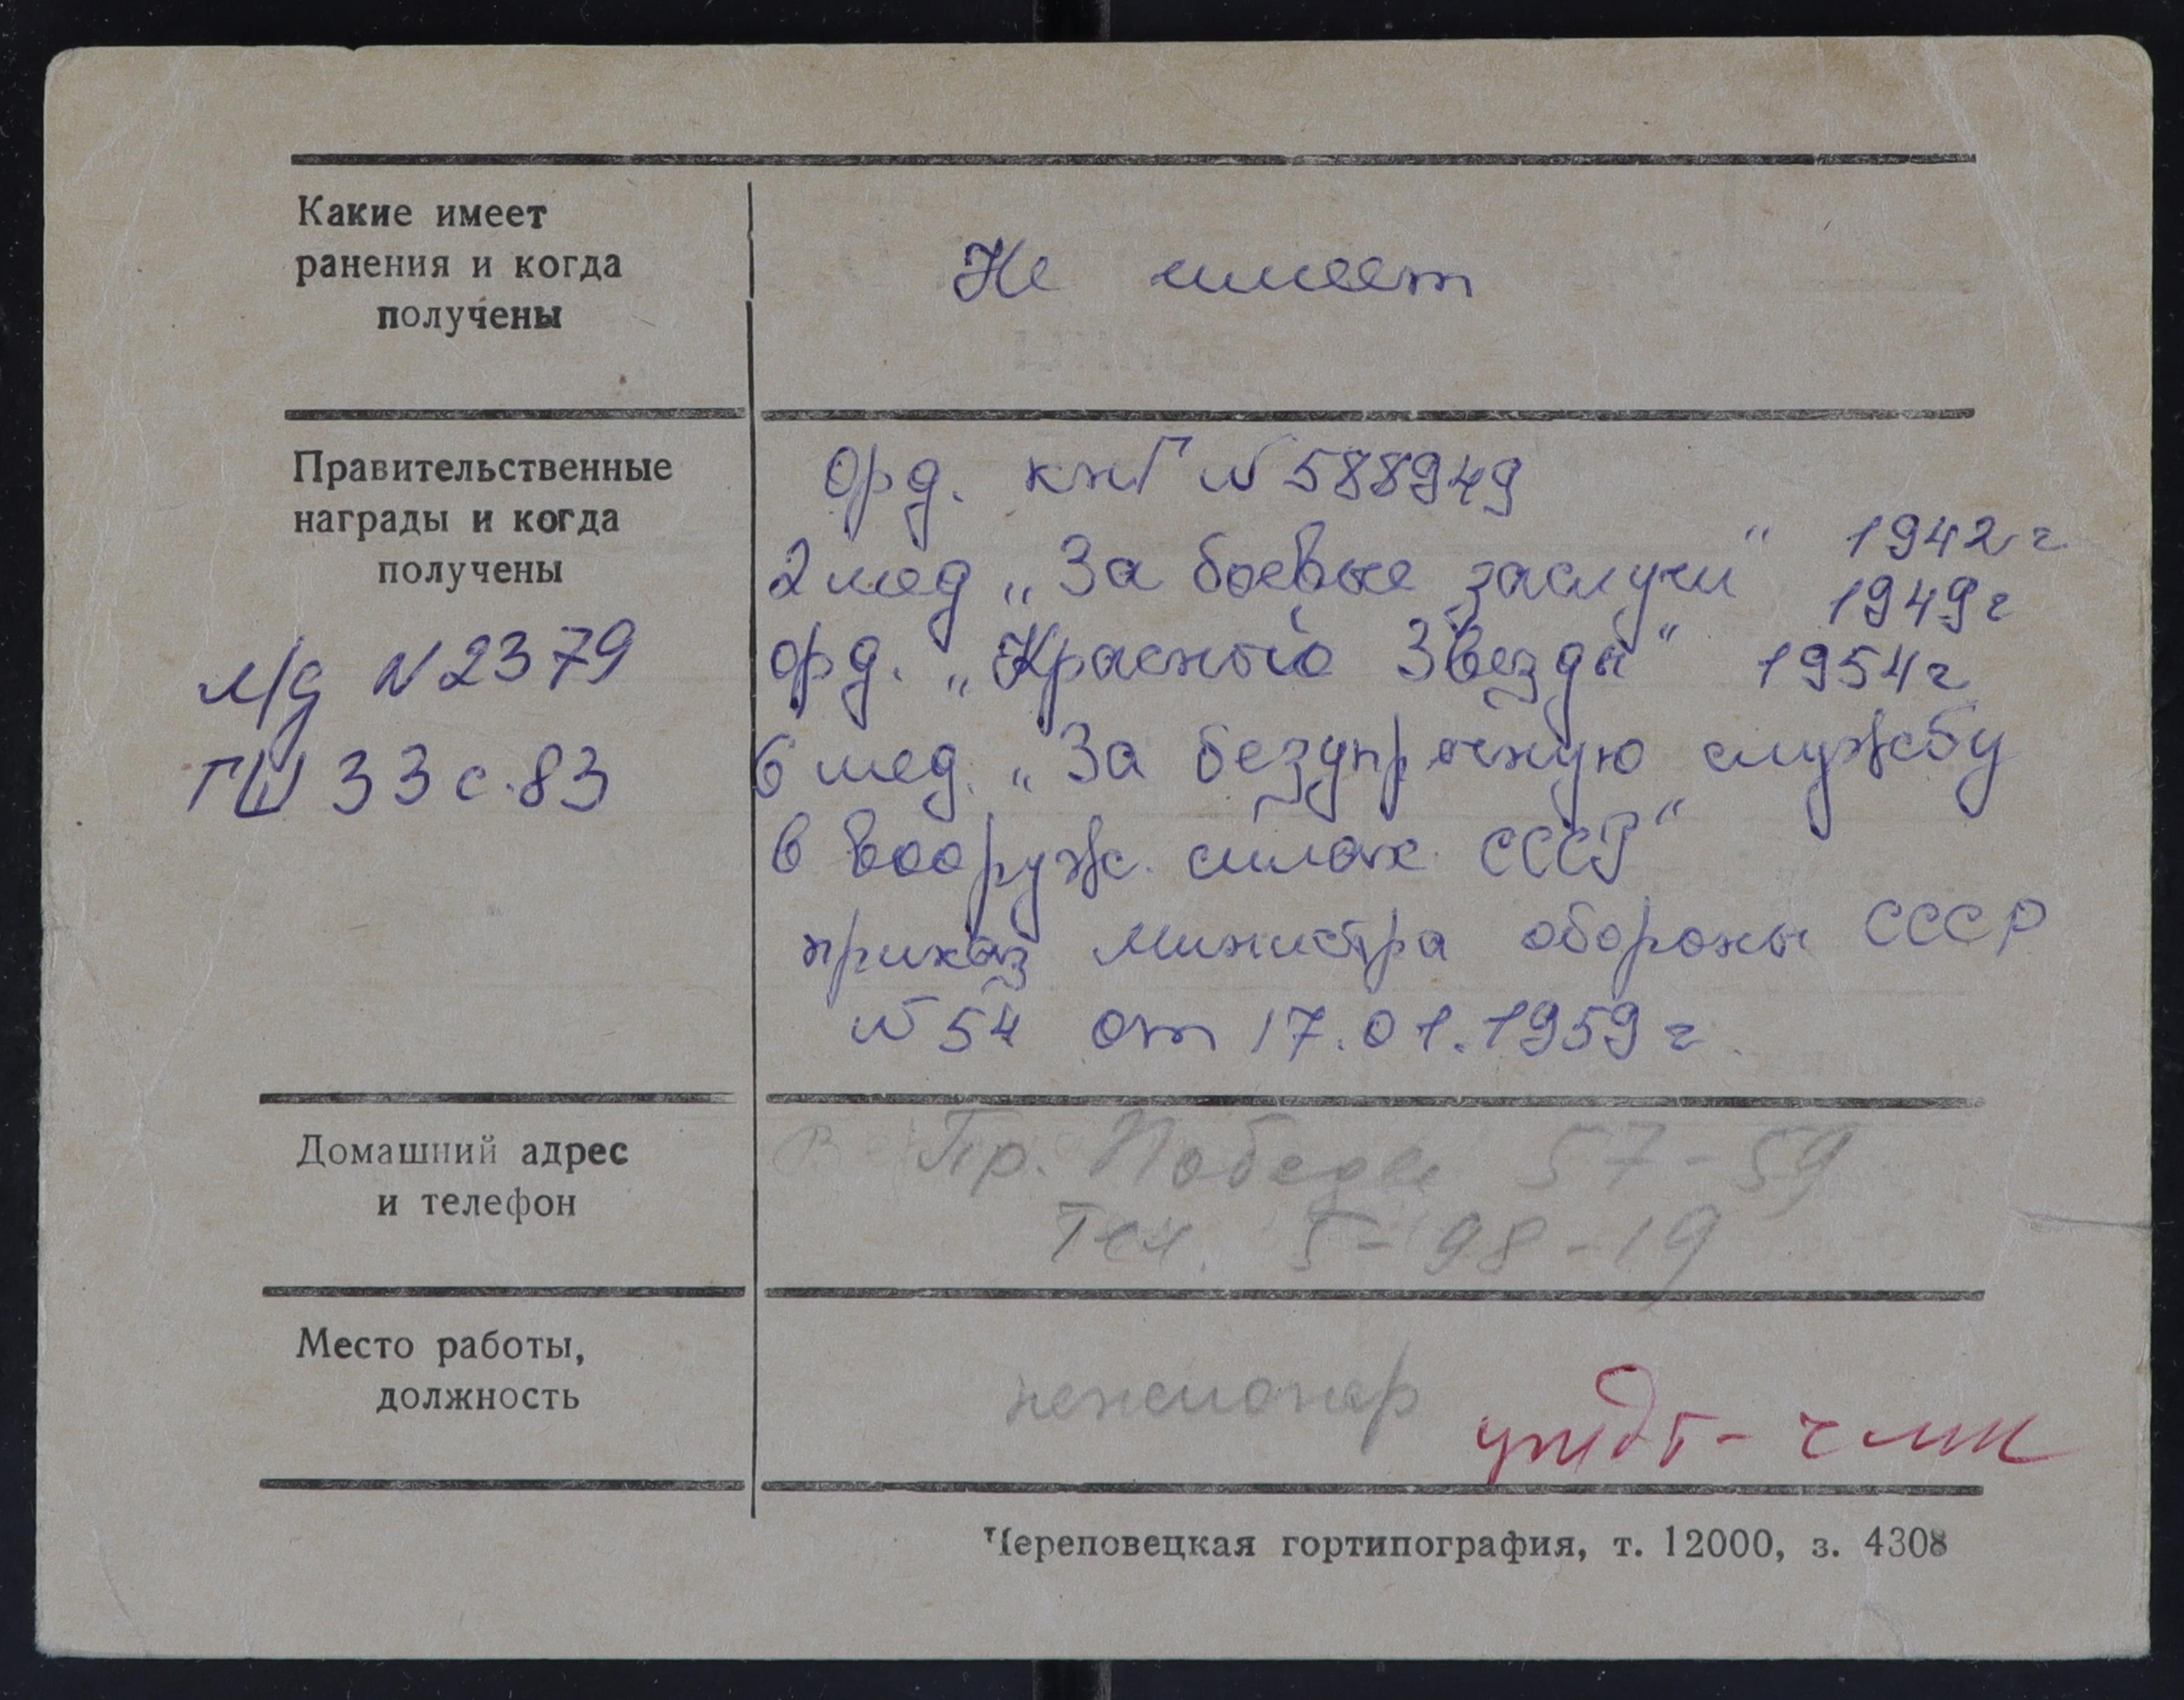 Какие имеет
ранения и когда
получены
Не имеет
Правительственные
награды и когда
получены
л/д N 2379
ГШ 33 с. 83
Орд. кнГ N 588949
2 мед „За боевые заслуги“ 1942 г
1949 г
орд. „Красной Звезды“ 1954 г
6 мед. „За безупречную службу
в вооруж. силах СССР“
приказ министра обороны СССР
N 54 от 17.01.1959 г.
Домашний адрес
и телефон
Пр. Победы 57-59
Тел. 5-98-19
Место работы,
должность
пенсионер
ужДТ - ЧМК
Череповецкая гортипография, т. 12000, з. 4308